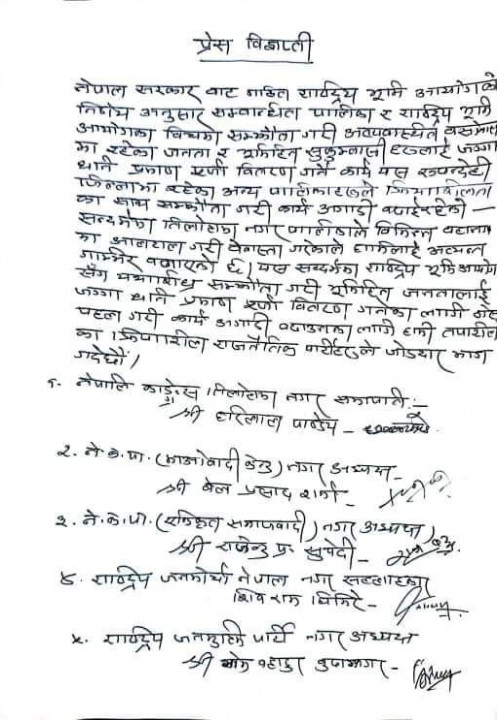 प्रेस विज्ञप्ती
नेपाल सरकार बाट गठित राष्ट्रिय भूमी आयोगको
निर्णय अनुसार सम्बन्धित पालिका र राष्ट्रिय भूमी
आयोगका बिचमा सम्झौता गरी अव्यवस्थित बसोबास
मा रहेका जनता र भूमिहित सुकुम्बासी हरुलाई जग्गा
धनि प्रमाण पूर्जा वितरण गर्ने कार्य यस रुपन्देही
जिल्लामा रहेका अन्य पालीकाहरुले क्रियाशिलता
का साथ सम्झौता गरी कार्य अगाडी
सन्दर्भमा तिलोत्तमा नगर पालीकाले विभिन्न बहाना
का गरी गरेकोले हामीलाई अत्यन्त
गाम्भिर बनाएको छ। यस सन्दर्भमा राष्ट्रिय भूमि आयोग
सँग सम्झौता गरी भूमिहित जनतालाई
जग्गा धनि प्रमाण पूर्जा वितरण गर्नका लागी
पहल गरी कार्य अगाडी बढाउनका लागी हामी तपशील
का क्रियाशील राजनैतिक पार्टीहरुले जोडदार माग
गर्दछौं।
१. नेपालि काङ्ग्रेस तिलोत्तमा नगर सभापती :-
श्री हरिलाल पाण्डेय -
२. ने.क.पा. (माओवादी केन्द्र) नगर अध्यक्ष -
श्री बेल प्रसाद शर्मा -
३. ने.क.पा. (एकिकृत समाजवादी) नगर अध्यक्ष
श्री राजेन्द्र प्र. सुवेदी -
४. राष्ट्रिय जनमोर्चा नेपाल नगर सल्लाहकार
शिव राम घिमिरे -
५. राष्ट्रिय जनमुक्ति पार्टी नगर अध्यक्ष
श्री बहादुर -